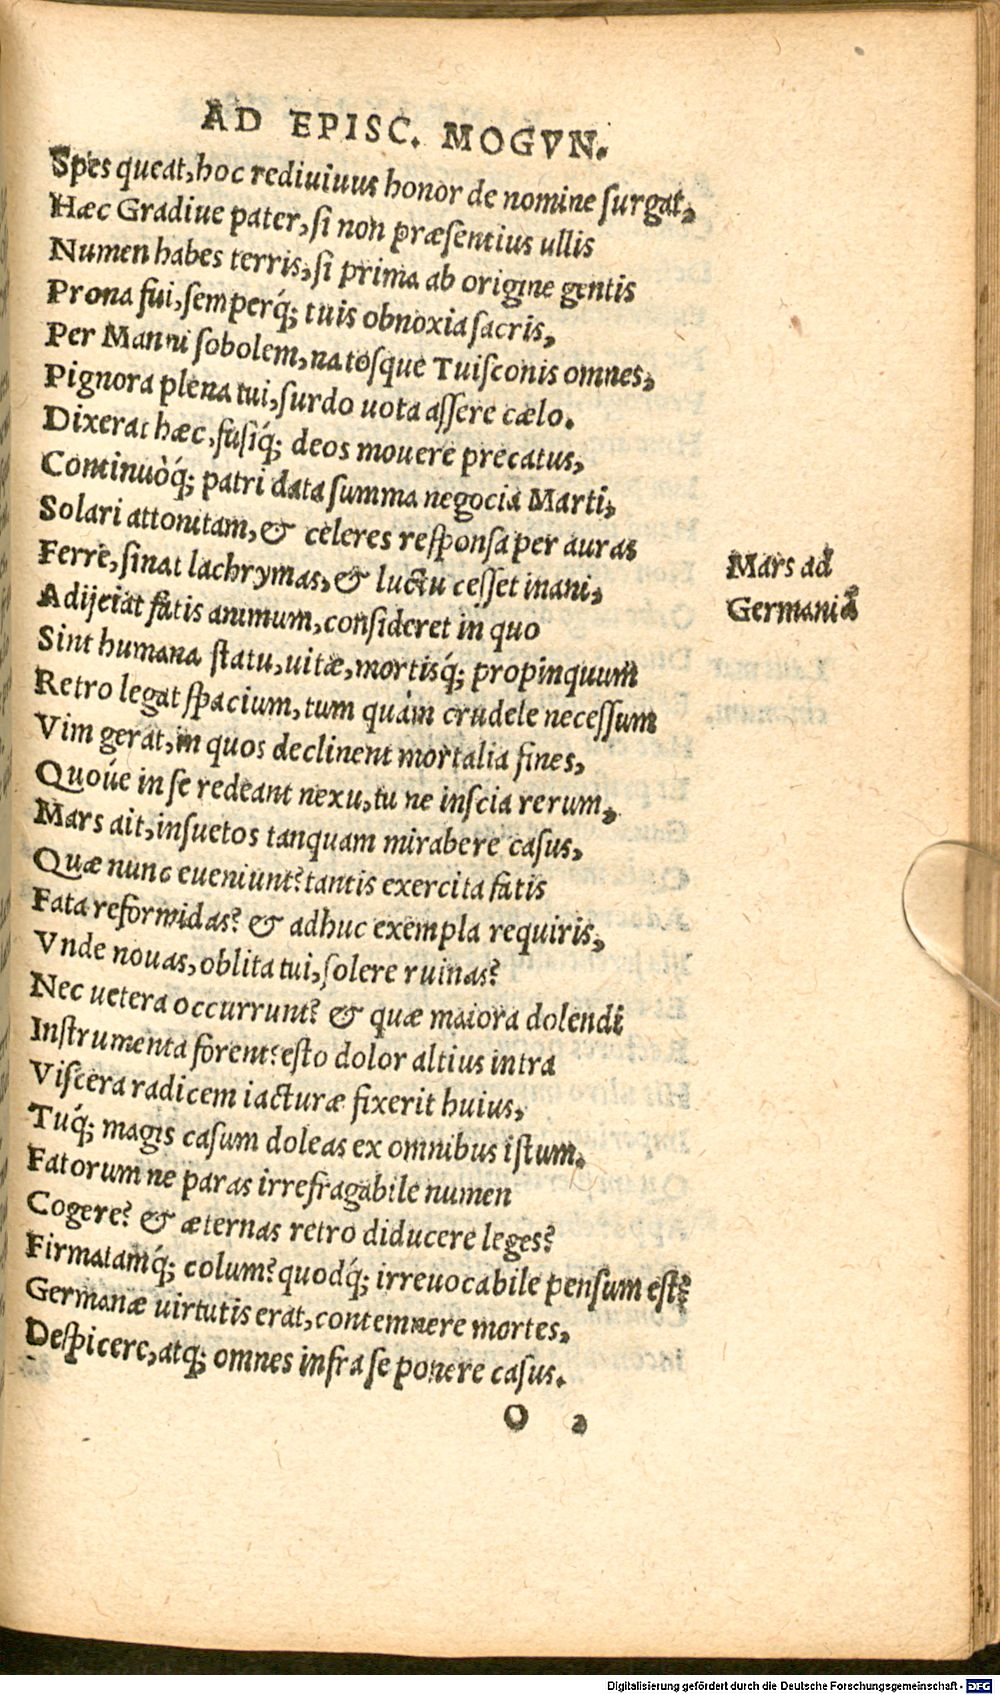 AD EPISC. MOGVN.
Spes queat, hoc rediuiuus honor de nomine ſurgat,
Hæc Gradiue pater, ſi non præſentius ullis
Numen habes terris, ſi prima ab origine gentis
Prona fui, ſemperq́; tuis obnoxia ſacris,
Per Manni ſobolem, natosque Tuiſconis omnes,
Pignora plena tui, ſurdo uota aſſere cælo.
Dixerat hæc, fuſiq́; deos mouere precatus,
Continuòq́; patri data ſumma negocia Marti,
Solari attonitam, & celeres reſponſa per auras
Ferre, ſinat lachrymas, & luctu ceſſet inani,
Adijciat fatis animum, conſideret in quo
Sint humana ſtatu, uitæ, mortisq́; propinquum
Retro legat ſpacium, tum quàm crudele neceſſum
Vim gerat, in quos declinent mortalia fines,
Quoúe in ſe redeant nexu, tu ne inſcia rerum,
Mars ait, inſuetos tanquam mirabere caſus,
Quæ nunc eueniunt? tantis exercita fatis
Fata reformidas? & adhuc exempla requiris,
Vnde nouas, oblita tui, ſolere ruinas?
Nec uetera occurrunt? & quæ maiora dolendi
Inſtrumenta forent? eſto dolor altius intra
Viſcera radicem iacturæ fixerit huius,
Tuq́; magis caſum doleas ex omnibus iſtum.
Fatorum ne paras irrefragabile numen
Cogere? & æternas retro diducere leges?
Firmatamq́; colum? quodq́; irreuocabile penſum eſt?
Germanæ uirtutis erat, contemnere mortes,
Deſpicere, atq; omnes infra ſe ponere caſus.
O 2
Mars ad
Germaniā
Digitalisierung gefördert durch die Deutsche Forschungsgemeinschaft - DFG